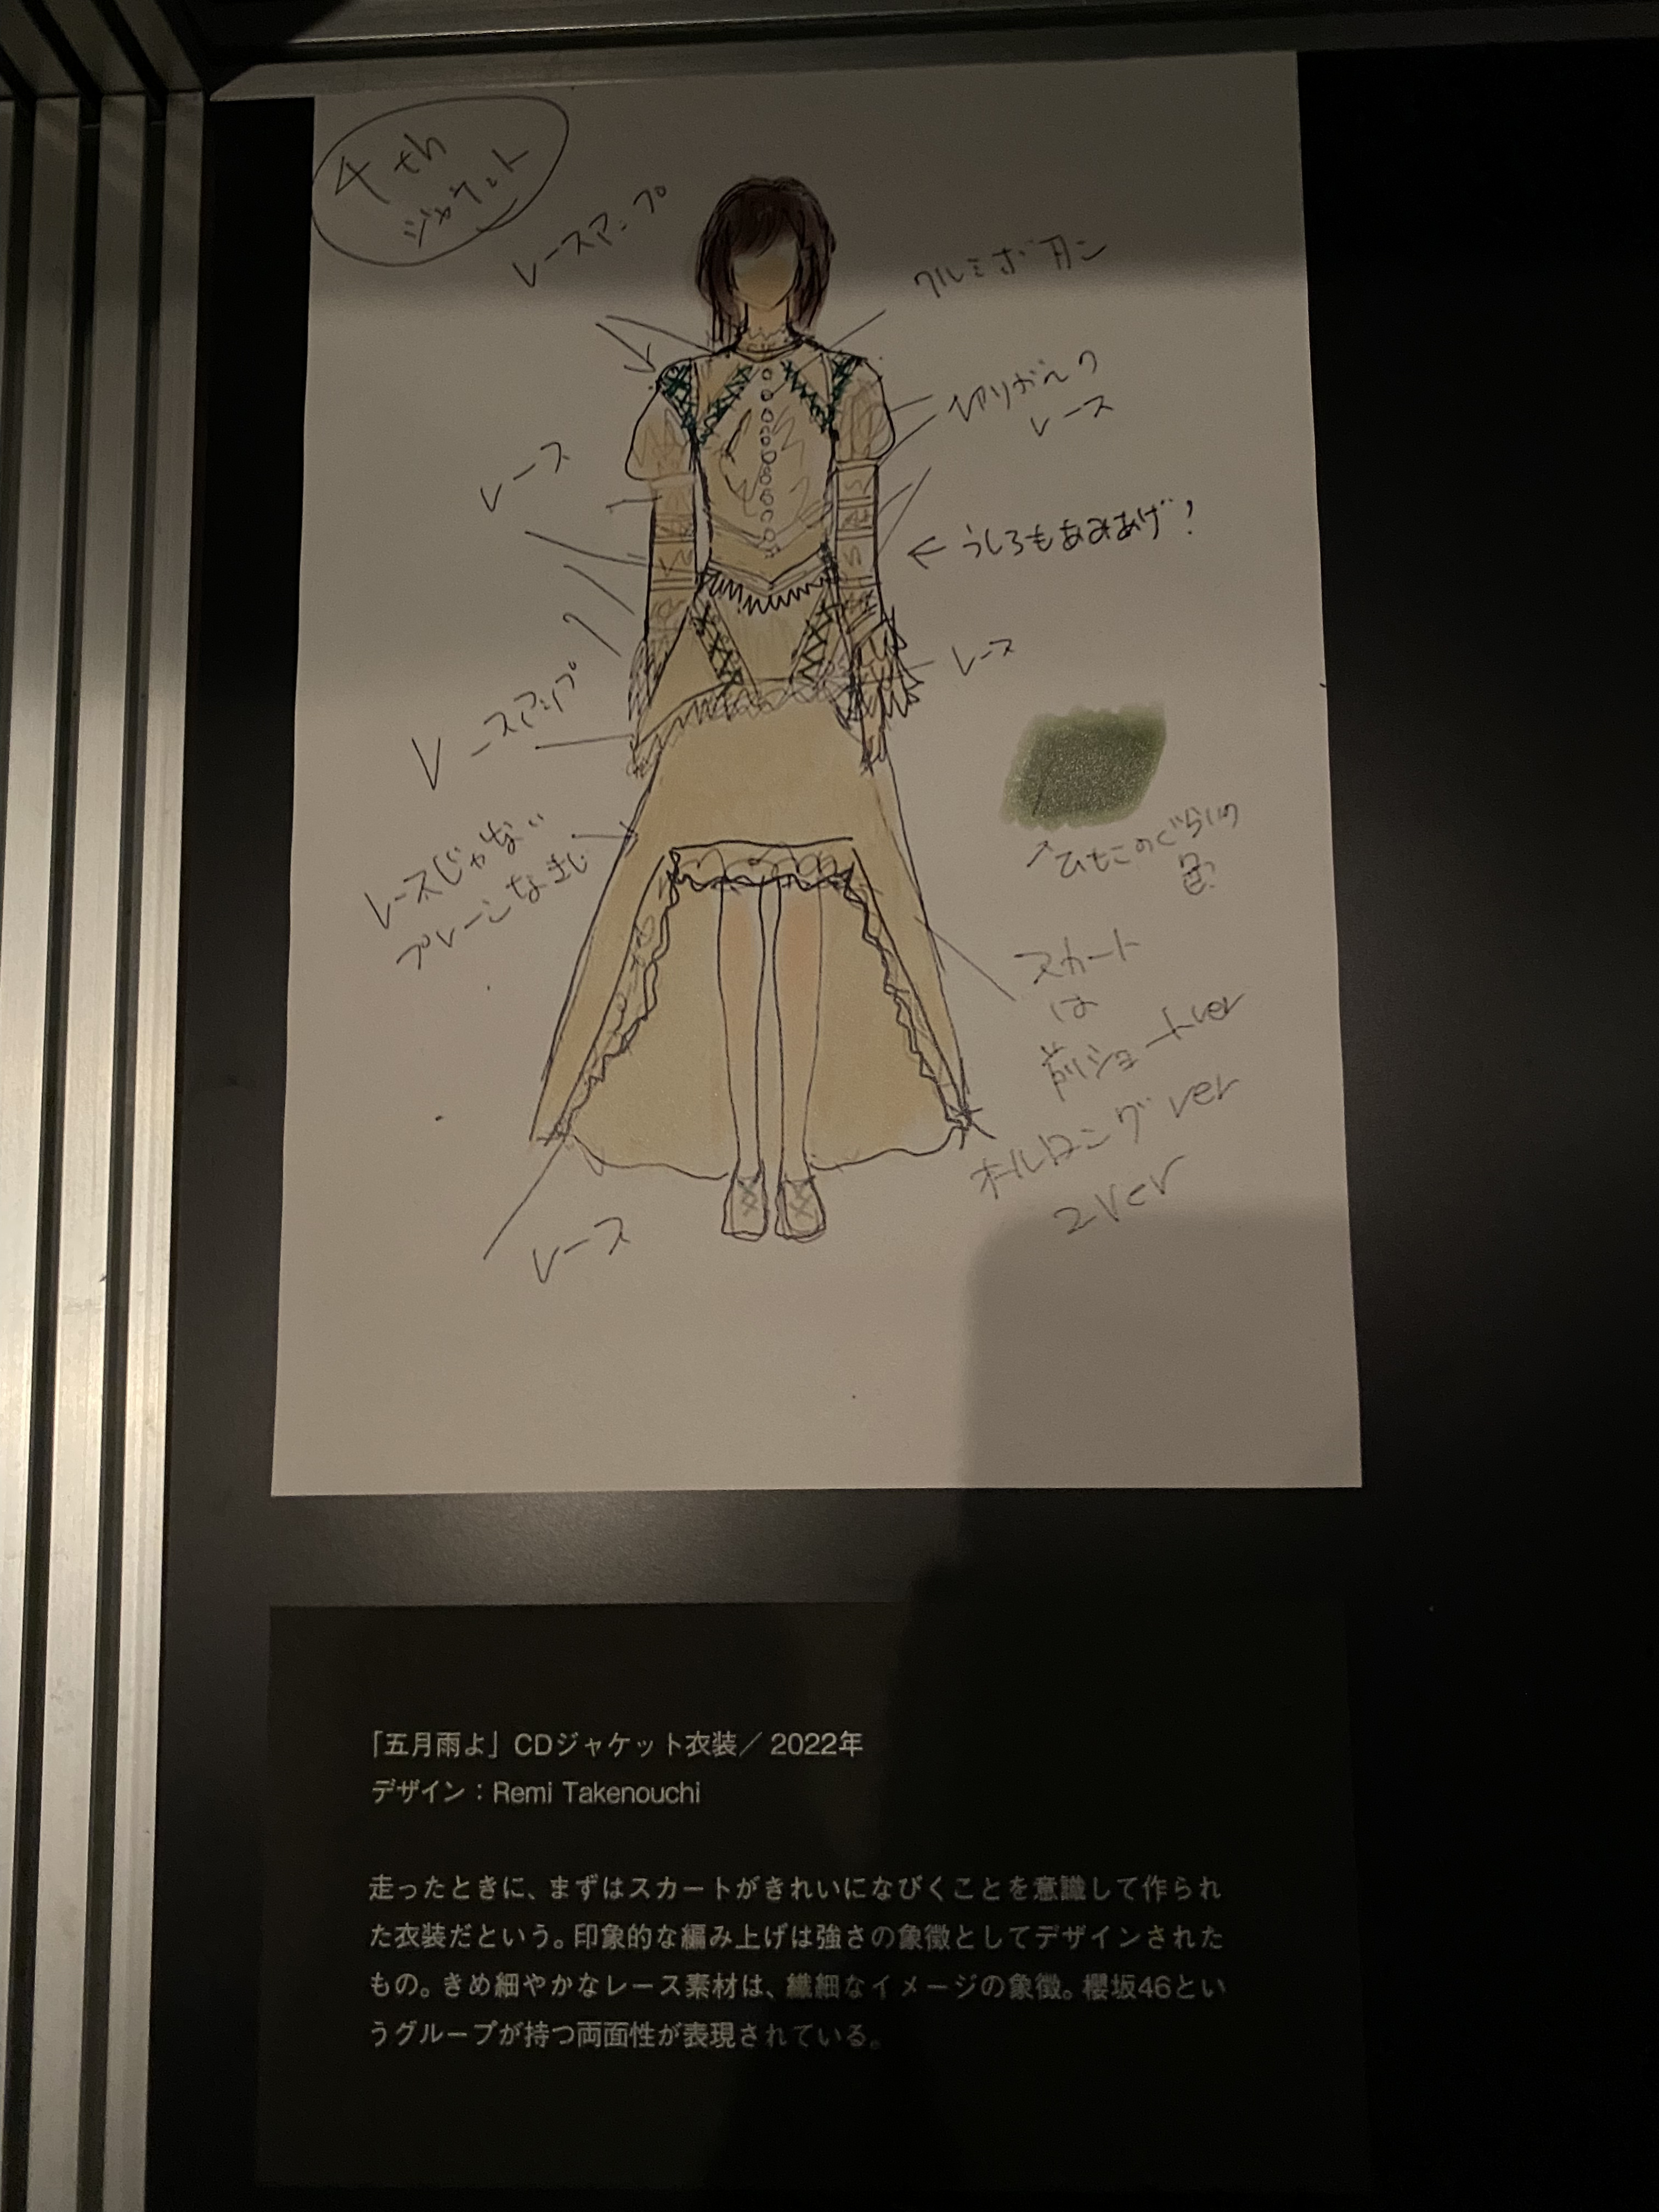 4th
ジャケット
レースアップ
クルミボタン
切りかえ
レース
レース
← うしろもあみあげ?
レース
レースアップ
ひもこのぐらいの
色
レースじゃない
プレーンなきじ
スカート
は
前ショートver
オールロングver
2ver
レース
「五月雨よ」CDジャケット衣装／2022年
デザイン：Remi Takenouchi
走ったときに、まずはスカートがきれいになびくことを意識して作られ
た衣装だという。印象的な編み上げは強さの象徴としてデザインされた
もの。きめ細やかなレース素材は、繊細なイメージの象徴。櫻坂46とい
うグループが持つ両面性が表現されている。